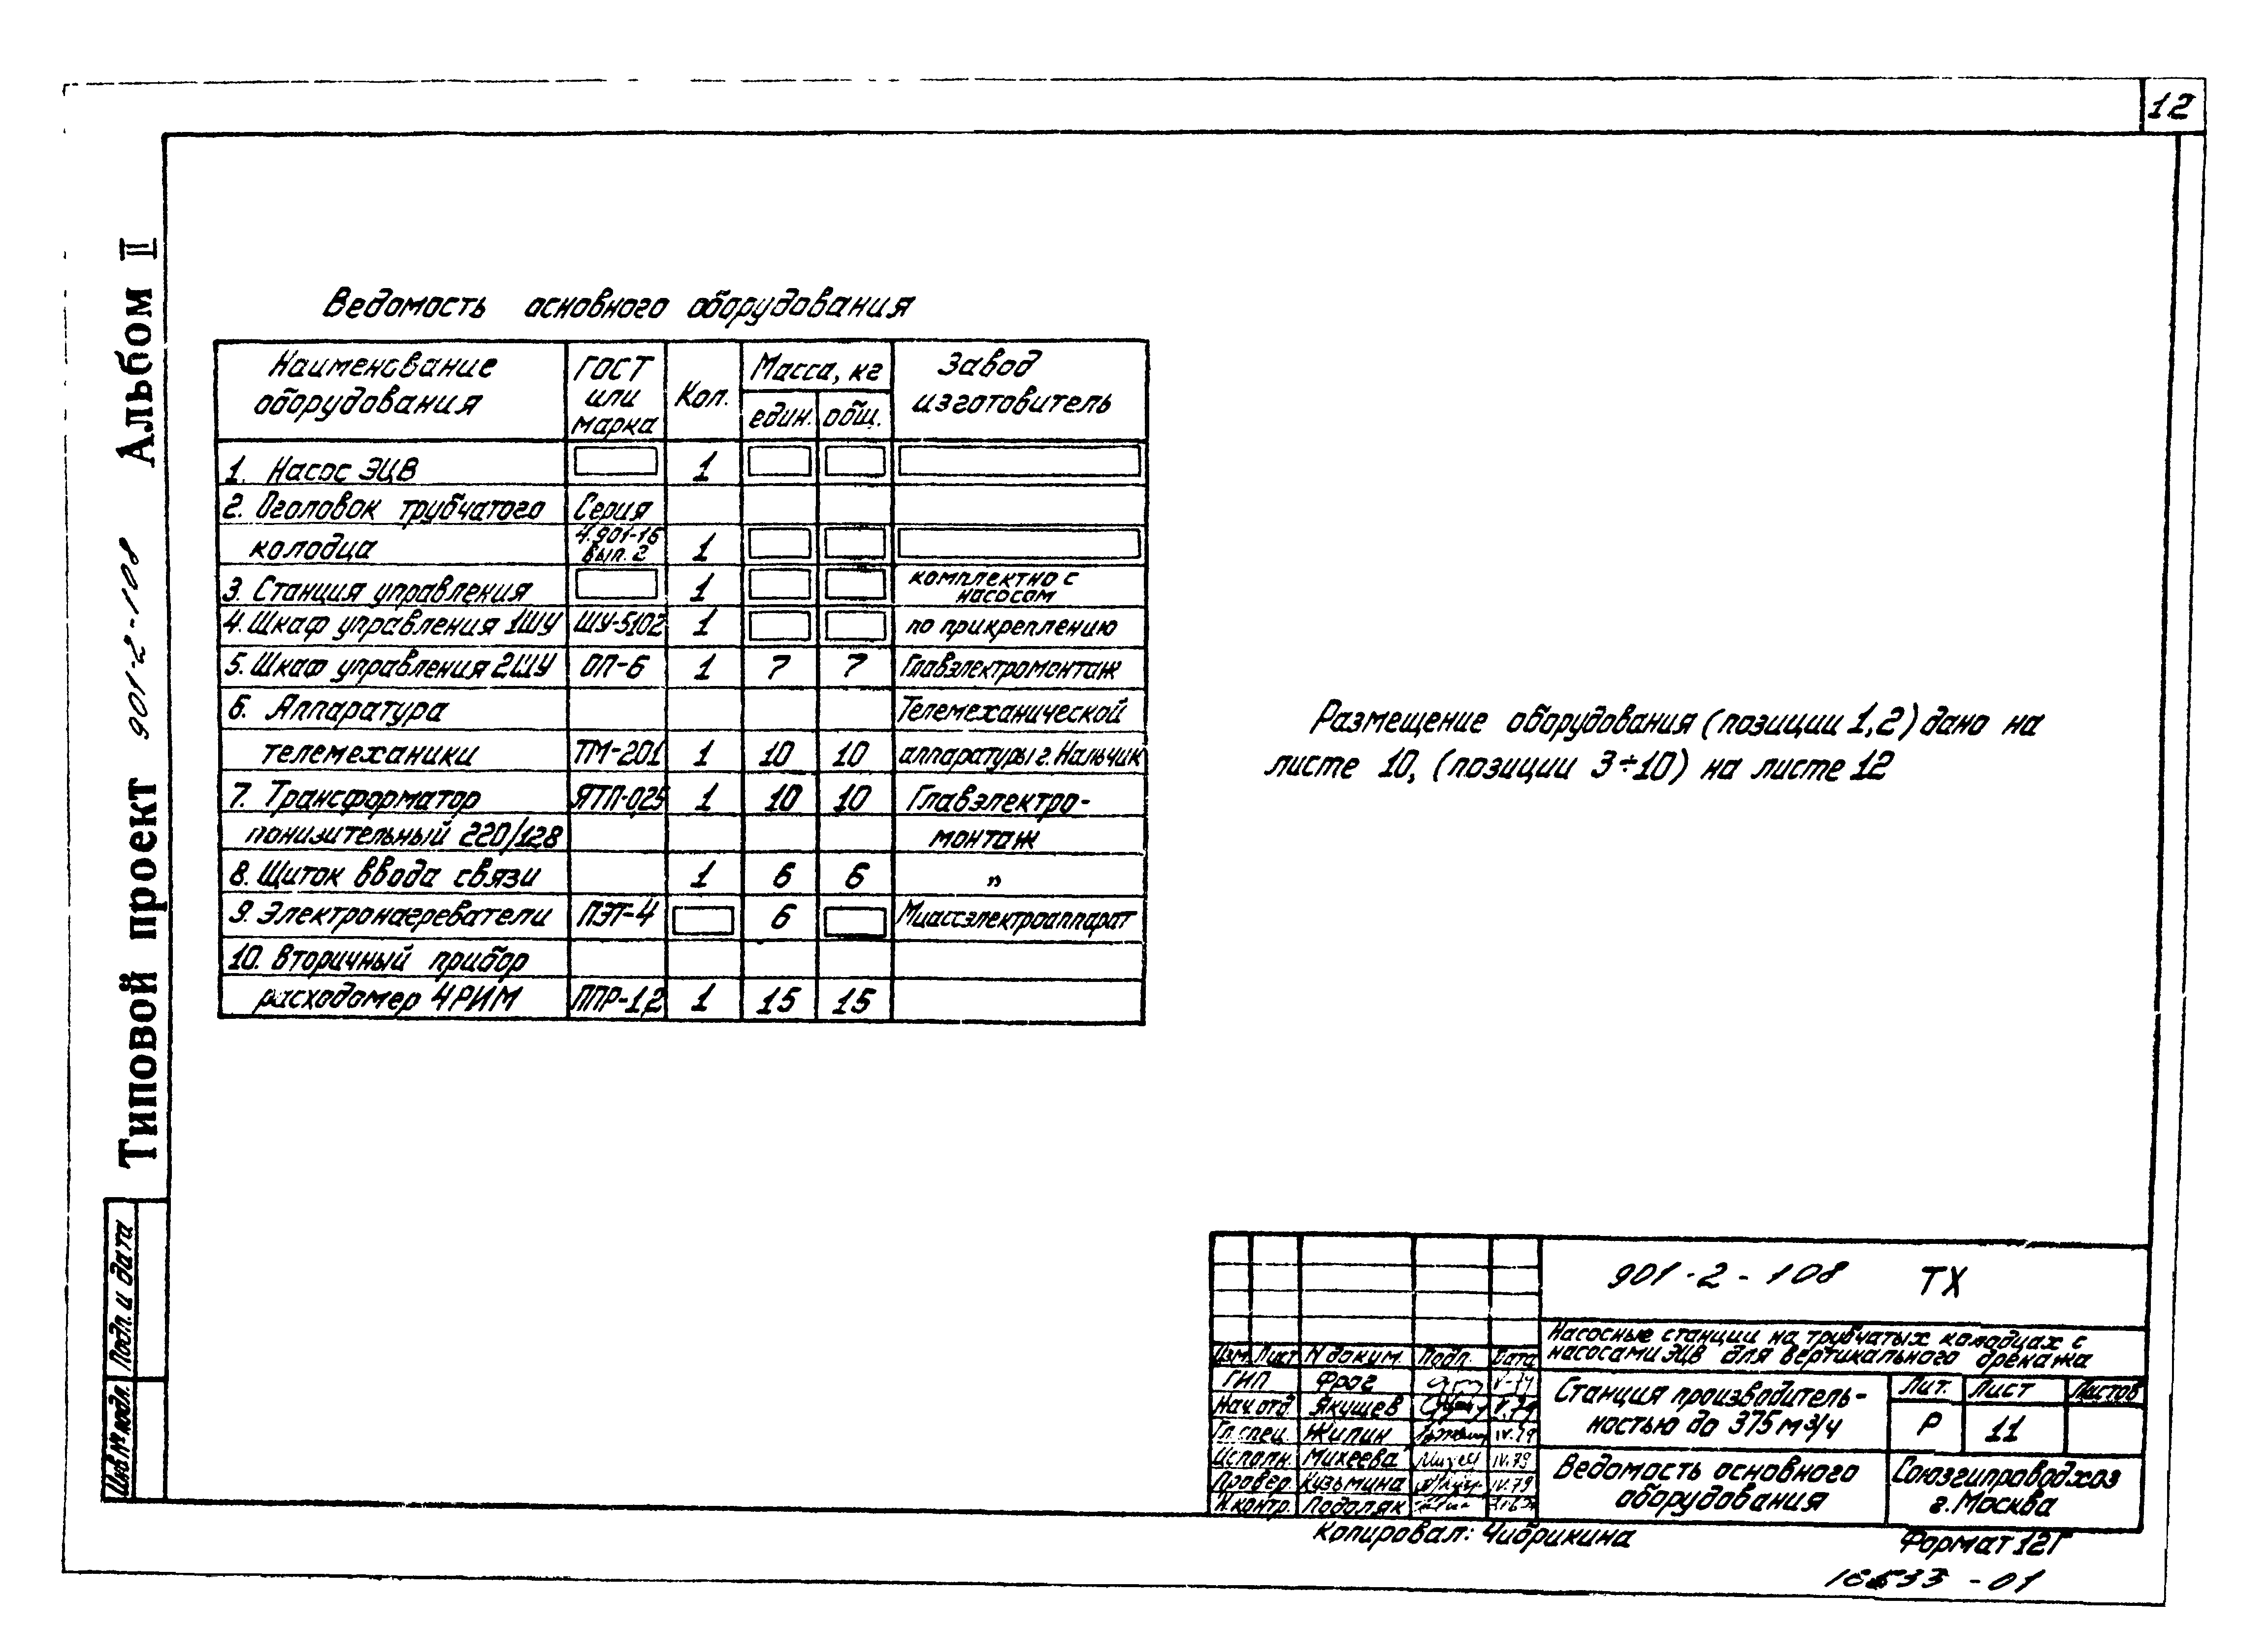 12
Типовой проект 901-2-108 Альбом II
Ведомость основного оборудования
Наименование оборудования | ГОСТ или марка | Кол. | Масса, кг | Завод изготовитель
един. | общ.
1. Насос ЭЦВ | 1
2. Оголовок трубчатого | Серия
колодца | 4.901-16 вып. 2 | 1
3. Станция управления | 1 | комплектно с насосом
4. Шкаф управления 1ШУ | ШУ-5102 | 1 | по прикреплению
5. Шкаф управления 2ШУ | ОП-6 | 1 | 7 | 7 | Главэлектромонтаж
6. Аппаратура | Телемеханической
телемеханики | ТМ-201 | 1 | 10 | 10 | аппаратуры г. Нальчик
7. Трансформатор | ЯТП-025 | 1 | 10 | 10 | Главэлектро-
понизительный 220/12В | монтаж
8. Щиток ввода связи | 1 | 6 | 6 | "
9. Электронагреватели | ПЭТ-4 | 6 | Миассэлектроаппарат
10. Вторичный прибор
расходомер 4РИМ | ППР-1,2 | 1 | 15 | 15
Размещение оборудования (позиции 1,2) дано на
листе 10, (позиции 3÷10) на листе 12
Подп. и дата
Инв № подл.
901-2-108 ТХ
Насосные станции на трубчатых колодцах с
насосами ЭЦВ для вертикального дренажа
Изм. Лист N докум. Подп. Дата
ГИП Фрог
Нач. отд. Якушев
Гл. спец. Жилин IV.79
Исполн. Михеева IV.79
Провер. Кузьмина IV.79
Н. контр. Подоляк
Станция производитель-
ностью до 375 м³/ч
Лит. Лист Листов
Р 11
Ведомость основного
оборудования
Союзгипроводхоз
г. Москва
Копировал: Чибрикина
Формат 12Г
-01